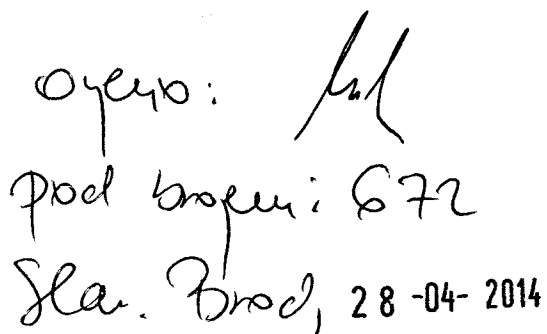 pod brojem: 672
Slav. Brod, 28 -04- 2014